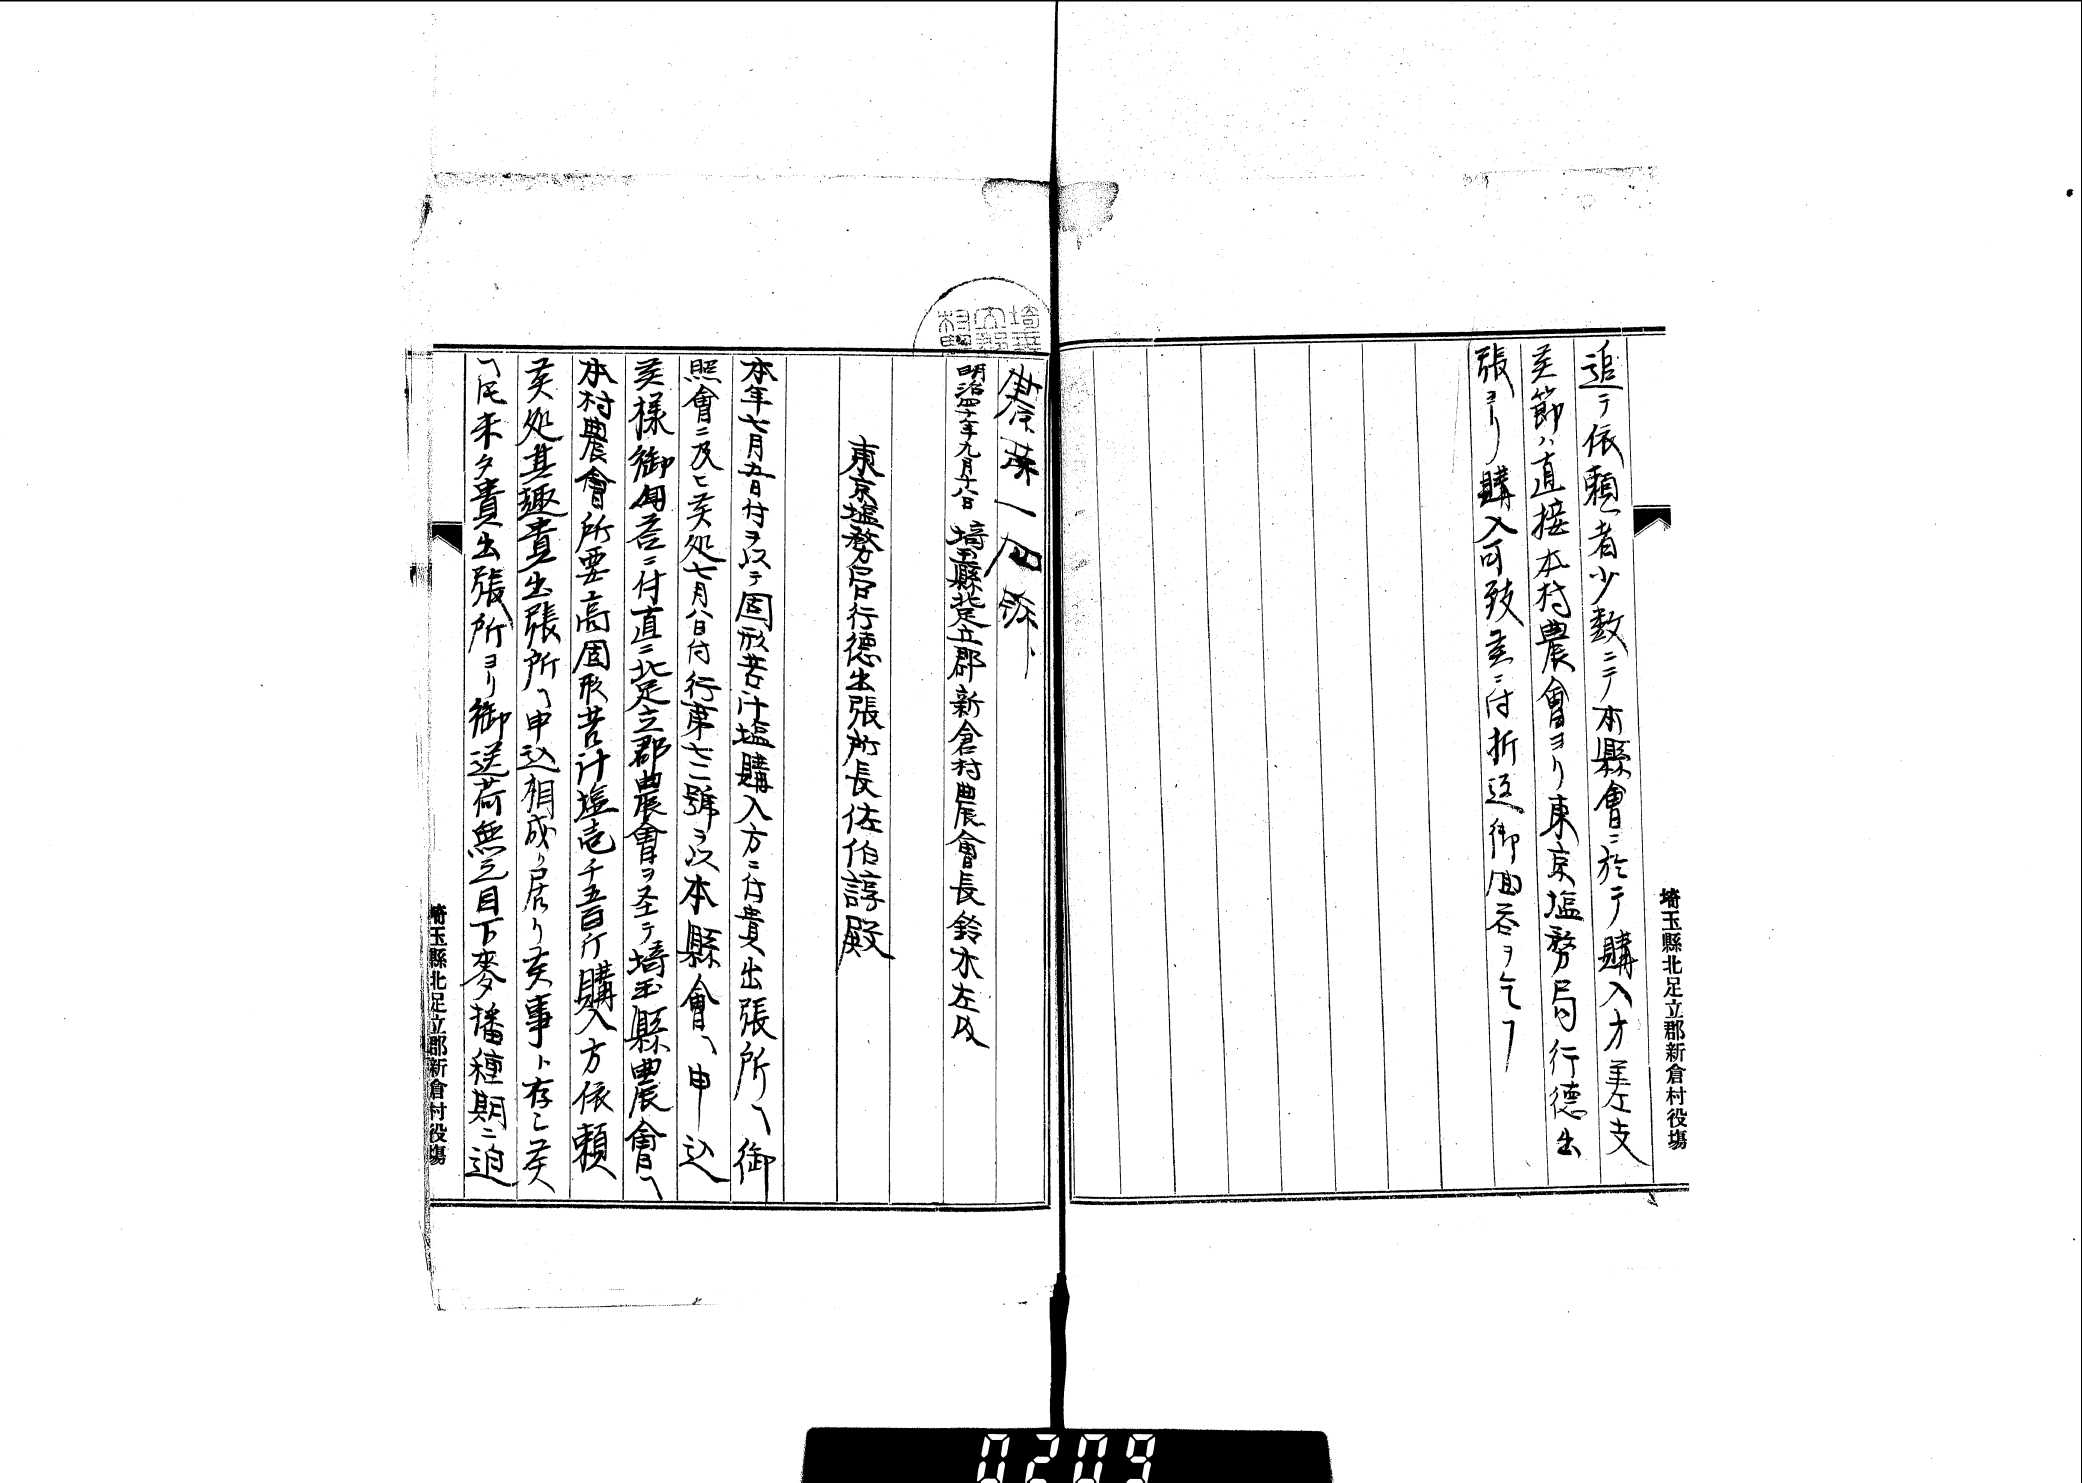 追テ依頼者少数ニテ本縣會ニ於テ購入方差支
候節ハ直接本村農會ヨリ東京塩務局行徳出
張ヨリ購入可致候ニ付折返御回答ヲ乞フ
埼玉縣北足立郡新倉村役塲
農第一四號
明治四十年九月十八日 埼玉縣北足立郡新倉村農會長鈴木左内
東京塩務局行德出張所長佐伯諄殿
本年七月五日付ヲ以テ固形苦汁塩購入方ニ付貴出張所ヘ御
照會ニ及ヒ候処七月八日付行第七二號ヲ以本縣會ヘ申込
候様御回答ニ付直ニ北足立郡農會ヲ経テ埼玉縣農會ヘ
本村農會所要高固形苦汁塩壱千五百斤購入方依頼
候処其趣貴出張所ヘ申込相成リ居リ候事ト存シ候
ヘ圧未タ貴出張所ヨリ御送荷無之目下麥播種期ニ迫
埼玉縣北足立郡新倉村役塲
0209